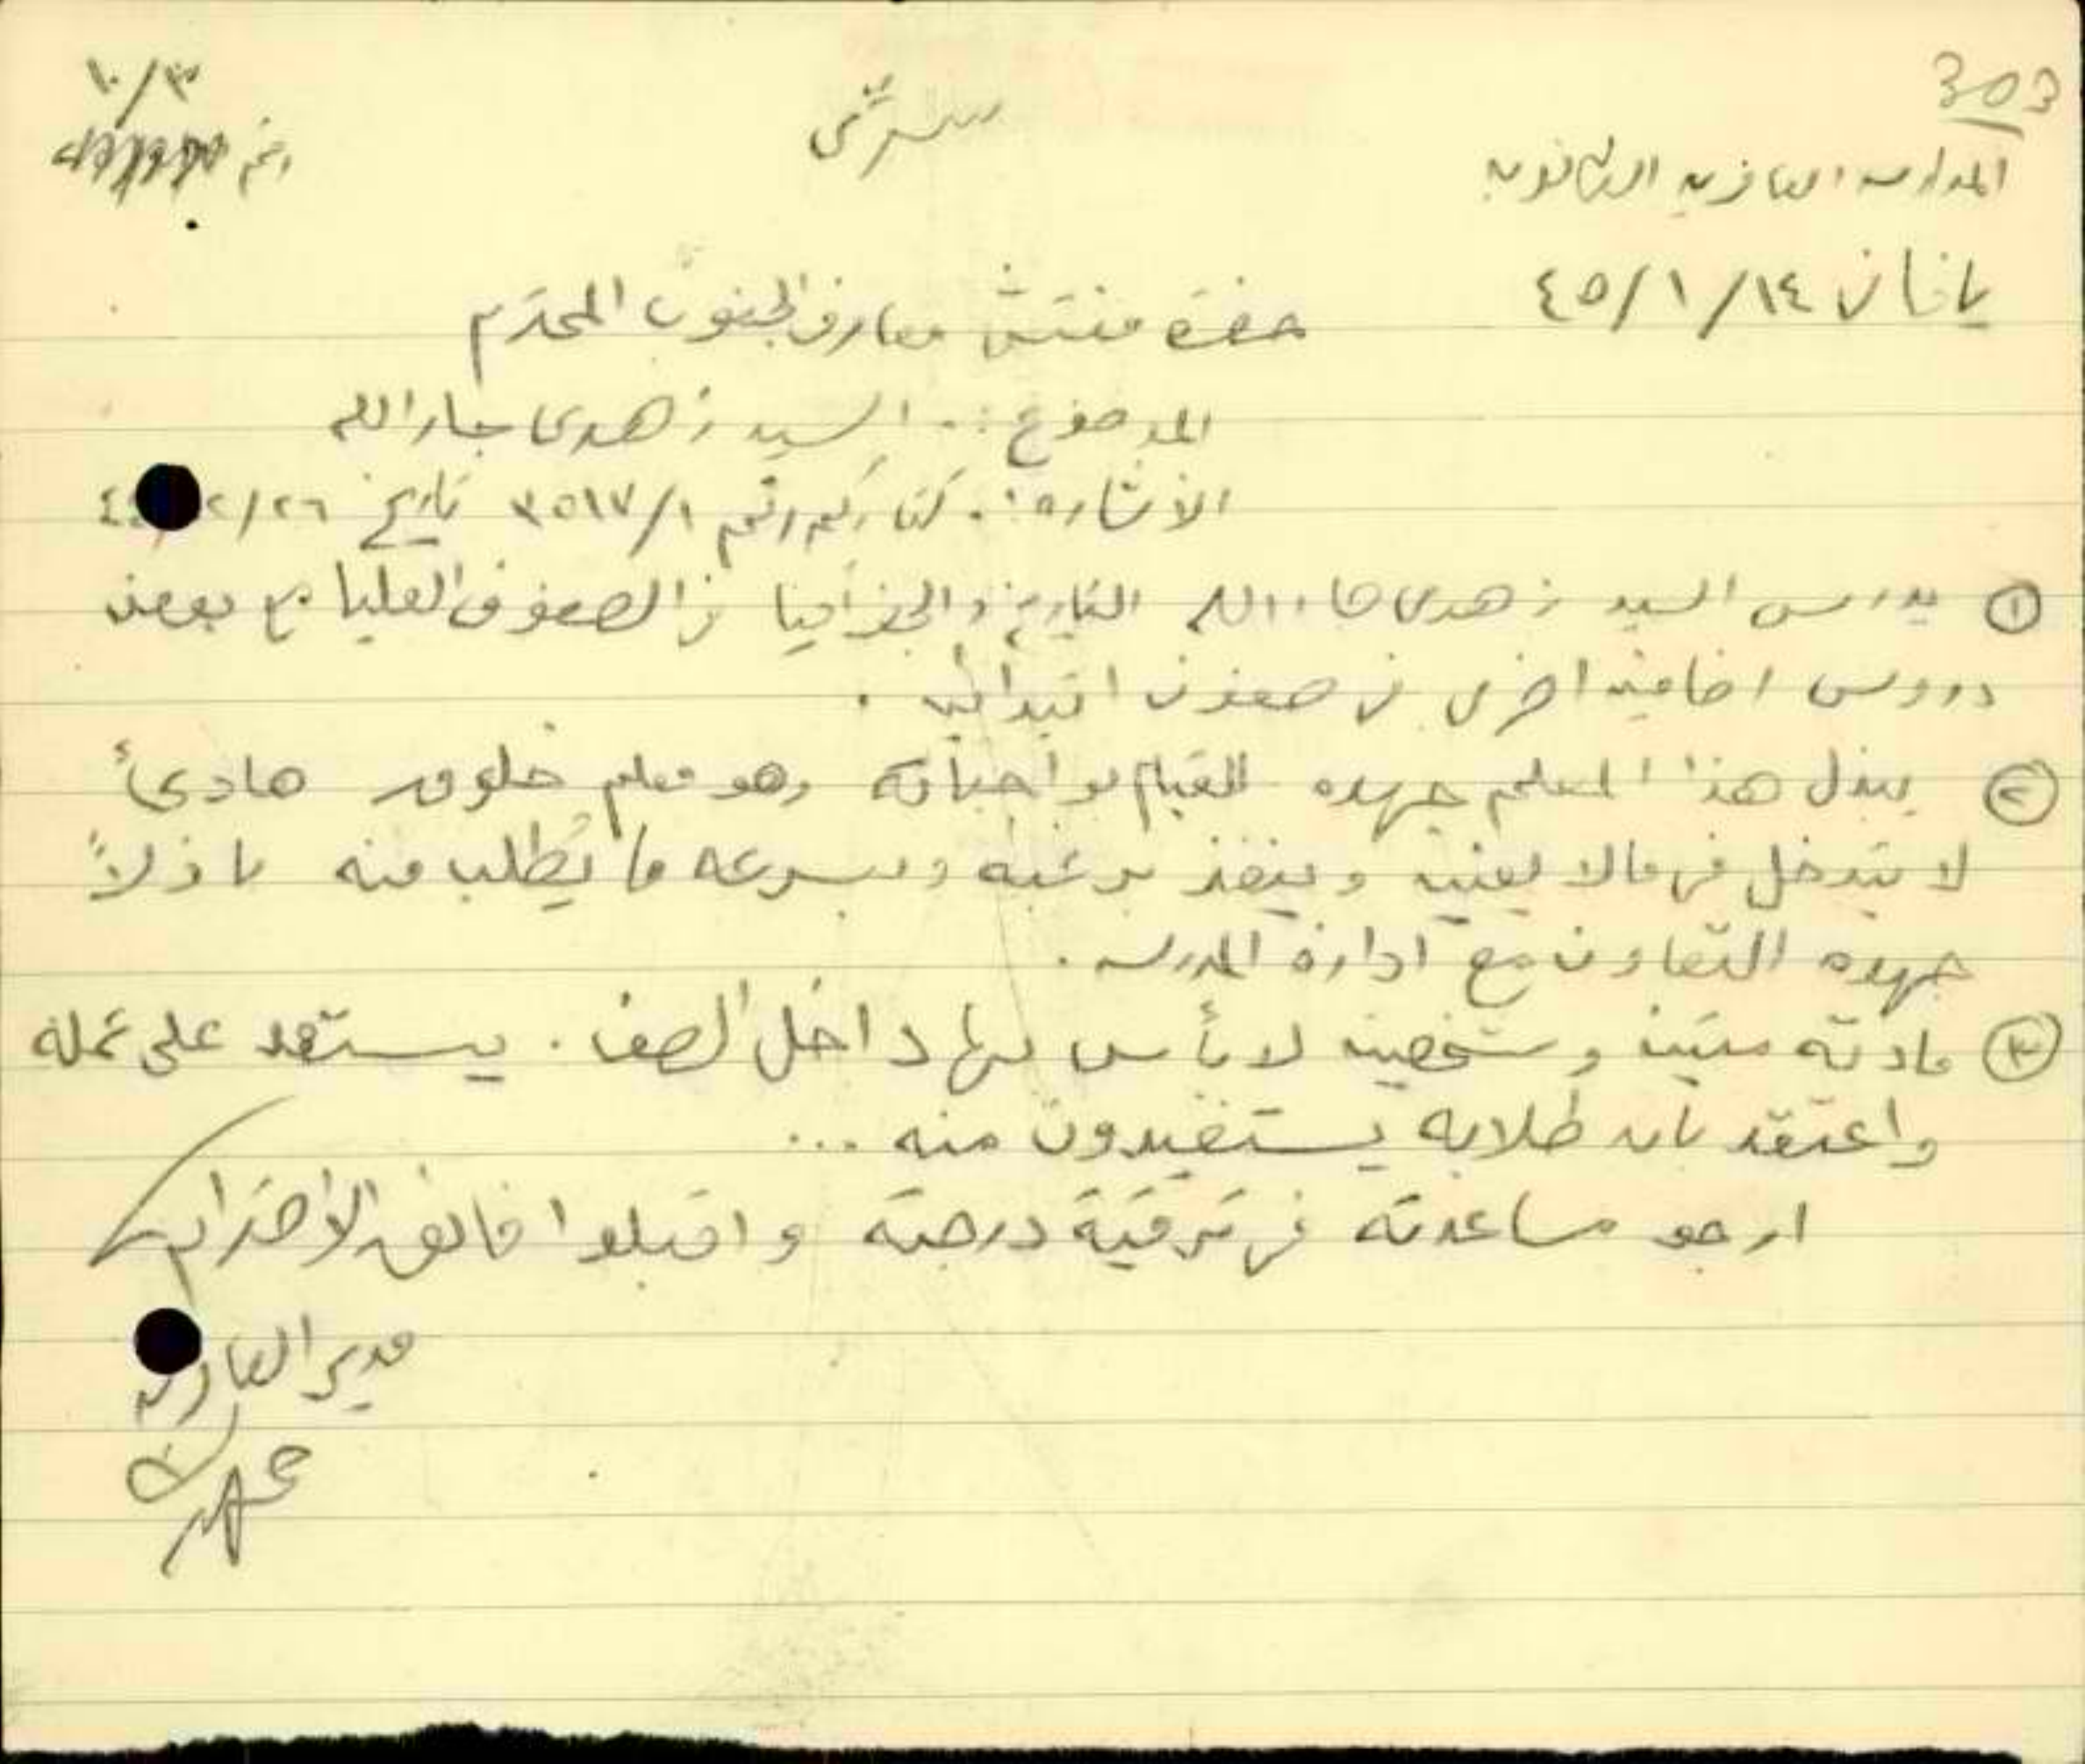 303
١٠/٣
سري
رقم
المدارس العامرية الثانوية
يافا في ١٤/١/٤٥
حضرة مفتش معارف الجنوب المحترم
الموضوع :. السيد زهدي جار الله
الاشارة :. كتابكم رقم ٣٥١٧/١ تاريخ ٢٦/
① يدرس السيد زهدي جار الله التاريخ والجغرافيا في الصفوف العليا مع بعض
دروس اضافية اخرى في صفوف ابتدائية .
② يبذل هذا المعلم جهده للقيام بواجباته وهو معلم خلوق هادئ
لا يتدخل في مالا يعنيه وينفذ برغبة وبسرعة ما يُطلب منه باذلاً
جهده التعاون مع ادارة المدرسة .
③ مادته متينة وشخصيته لا بأس بها داخل الصف . يستعد على عمله
واعتقد بان طلابه يستفيدون منه ...
ارجو مساعدته في ترقية درجته واقبلوا فائق الأحترام
مدير العامرية